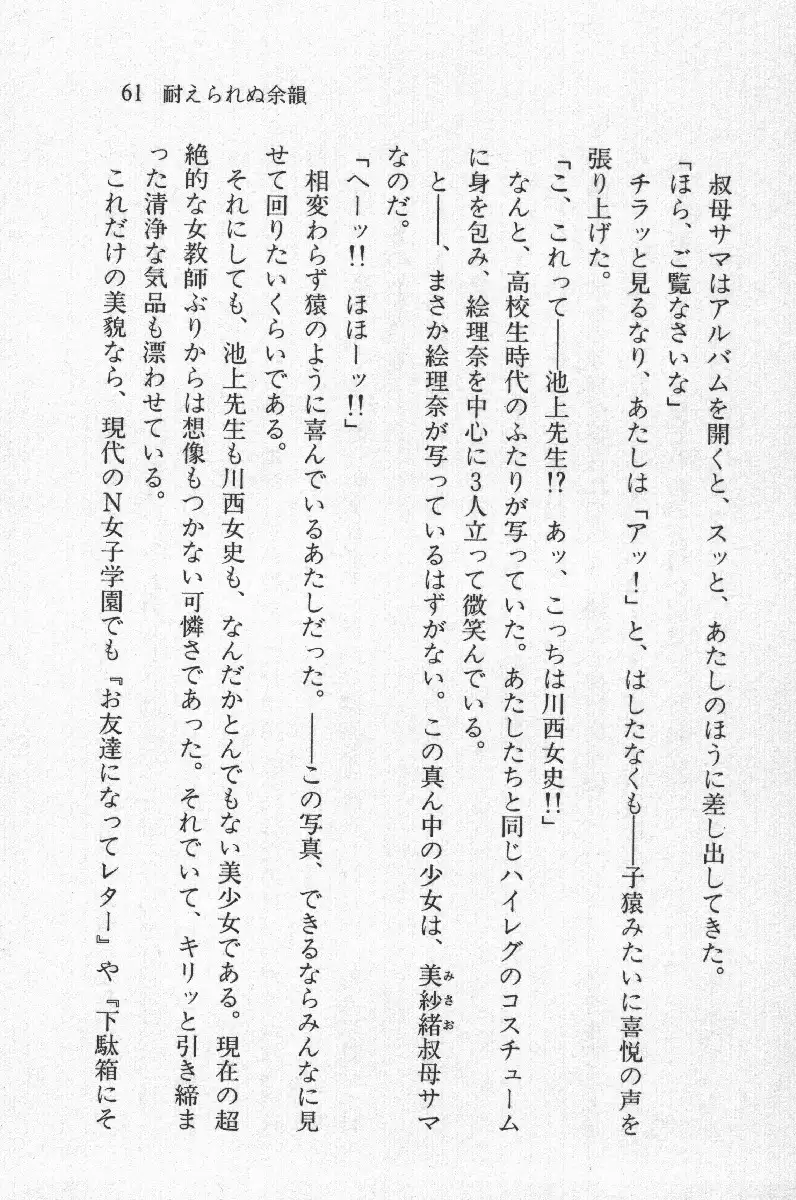 61 耐えられぬ余韻
　叔母サマはアルバムを開くと、スッと、あたしのほうに差し出してきた。
「ほら、ご覧なさいな」
　チラッと見るなり、あたしは「アッ！」と、はしたなくも――子猿みたいに喜悦の声を
張り上げた。
「こ、これって――池上先生!?　あッ、こっちは川西女史!!」
　なんと、高校生時代のふたりが写っていた。あたしたちと同じハイレグのコスチューム
に身を包み、絵理奈を中心に３人立って微笑んでいる。
　と――、まさか絵理奈が写っているはずがない。この真ん中の少女は、美紗緒（みさお）叔母サマ
なのだ。
「へーッ!!　ほほーッ!!」
　相変わらず猿のように喜んでいるあたしだった。――この写真、できるならみんなに見
せて回りたいくらいである。
　それにしても、池上先生も川西女史も、なんだかとんでもない美少女である。現在の超
絶的な女教師ぶりからは想像もつかない可憐さであった。それでいて、キリッと引き締ま
った清浄な気品も漂わせている。
　これだけの美貌なら、現代のＮ女子学園でも『お友達になってレター』や『下駄箱にそ